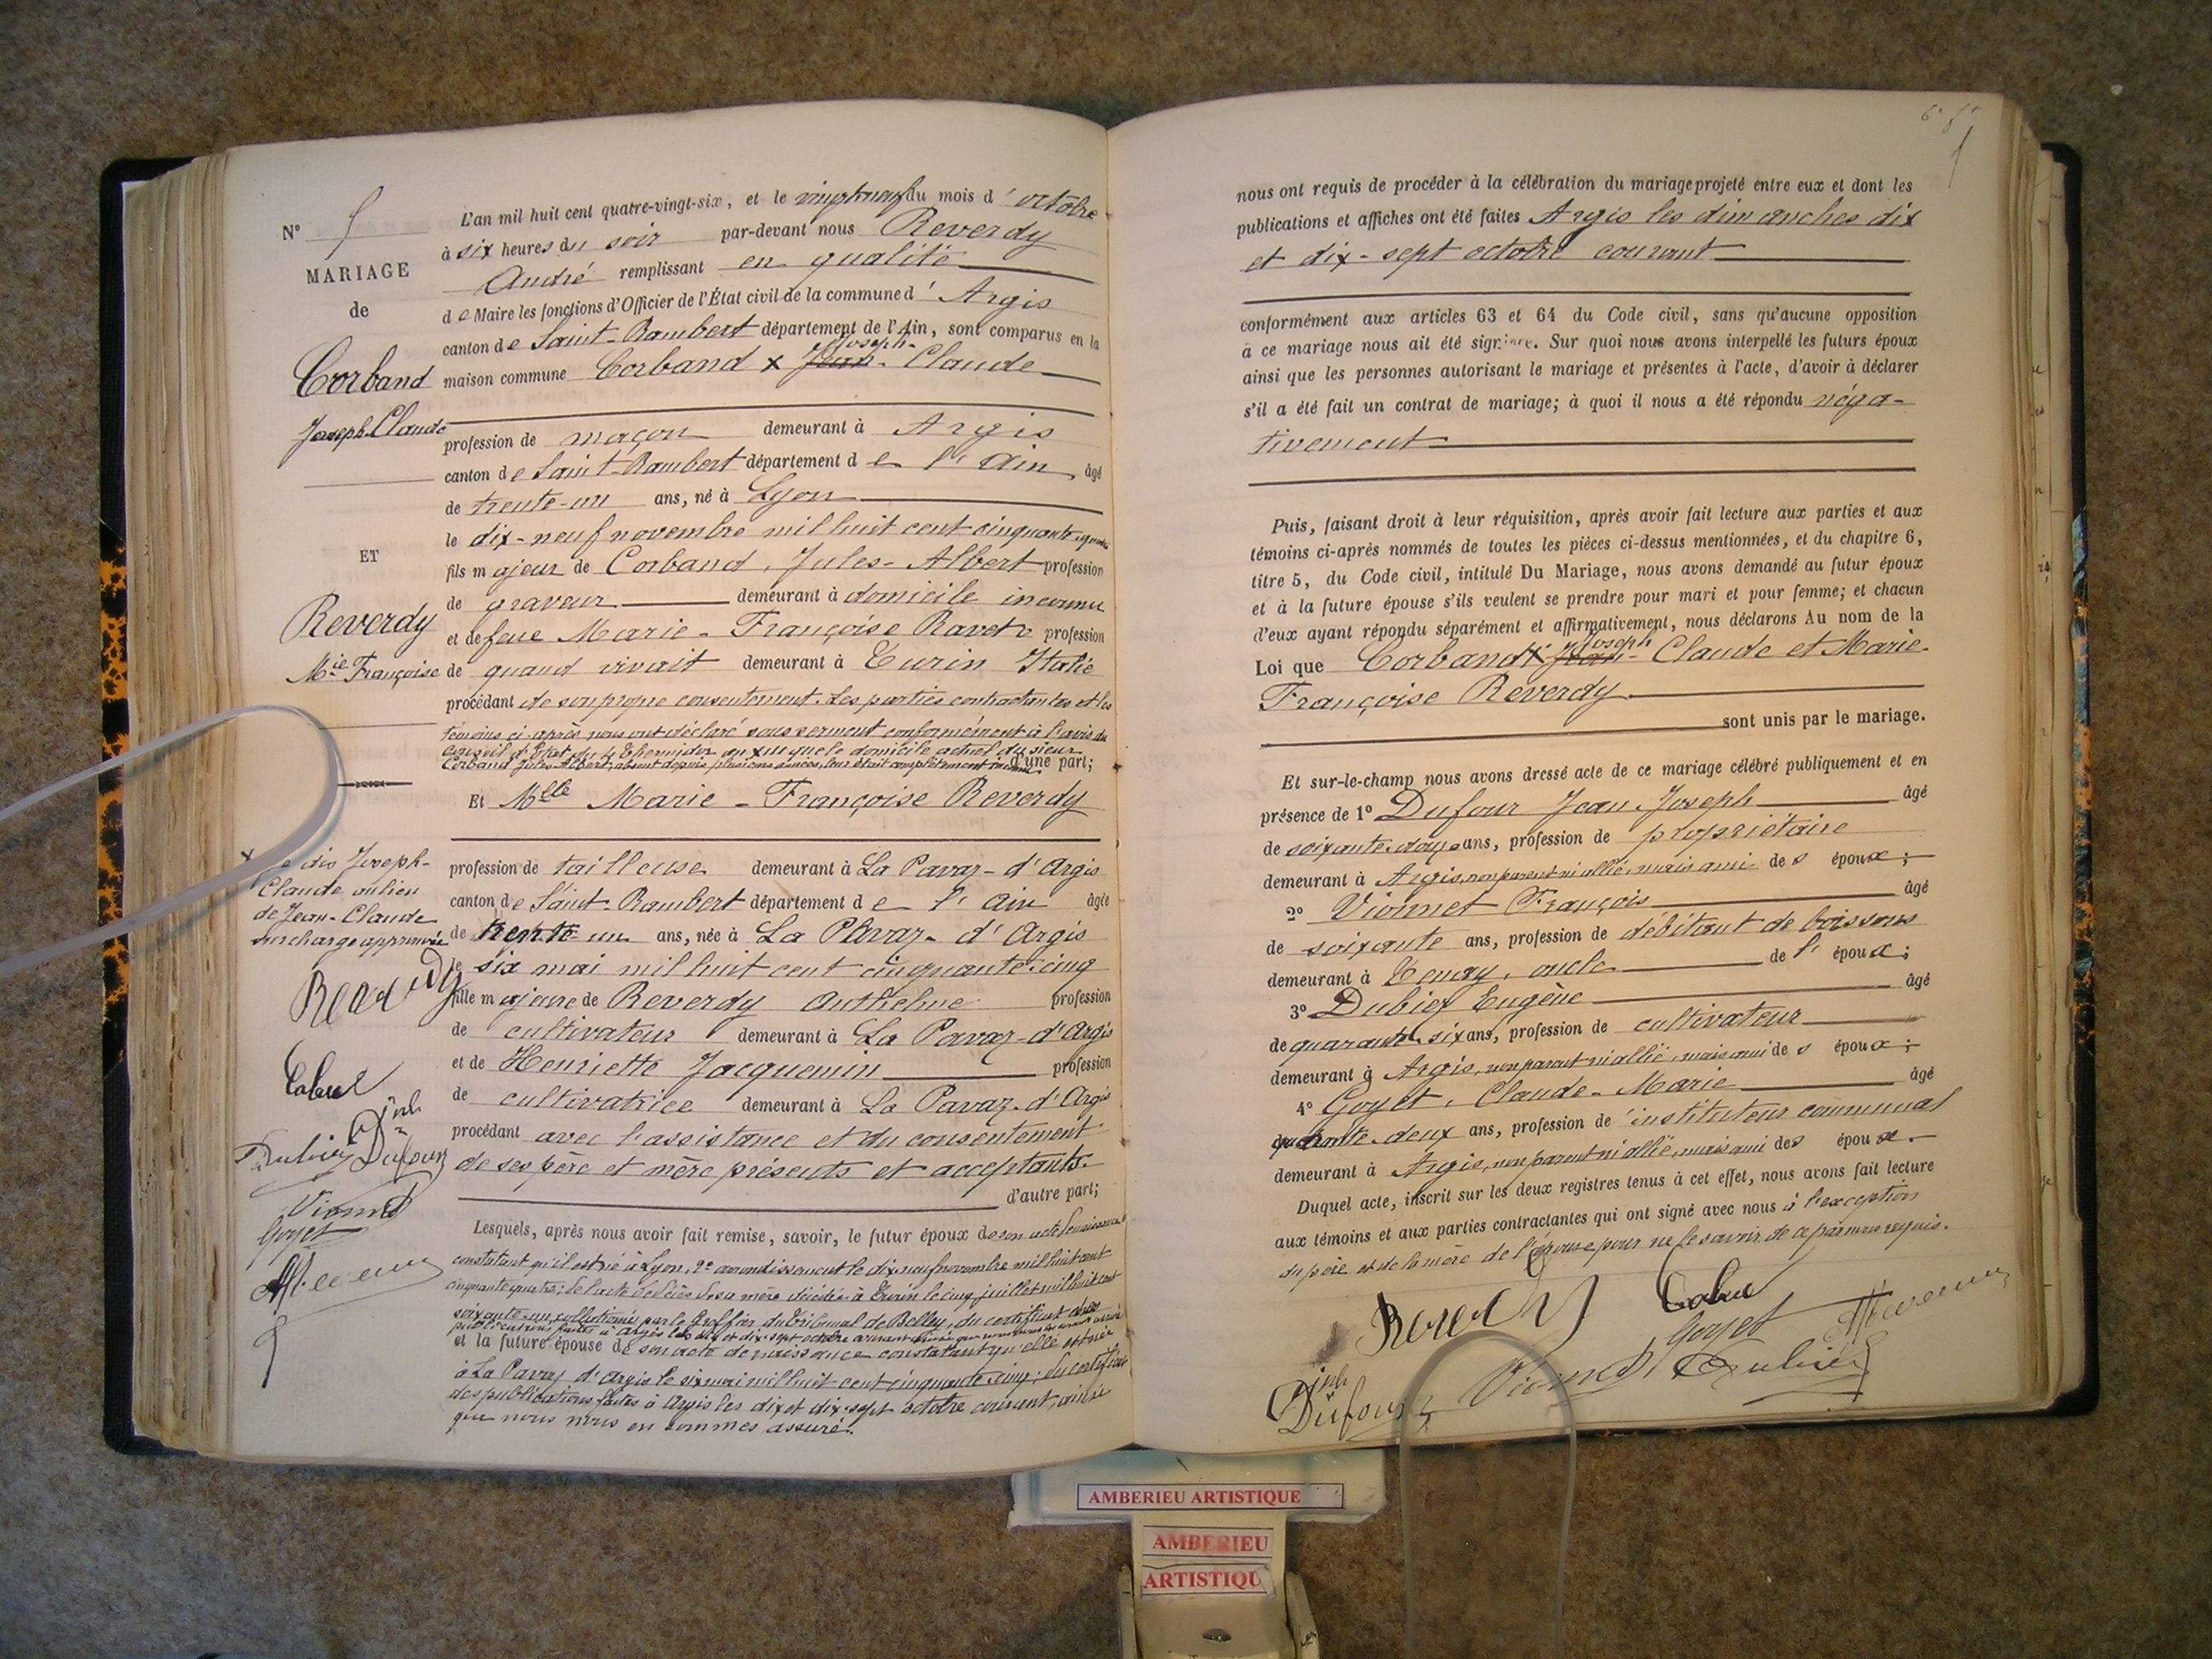 N° 5
MARIAGE
de
Corband
Joseph-Claude
ET
Reverdy
Mie Françoise
L'an mil huit cent quatre-vingt-six, et le vingt-neuf du mois d'octobre
à six heures du soir par-devant nous Reverdy
André remplissant en qualité
de Maire les fonctions d'Officier de l'État civil de la commune d'Argis
canton de Saint-Rambert département de l'Ain, sont comparus en la
maison commune Corband x Jean Joseph-Claude
profession de maçon demeurant à Argis
canton de Saint-Rambert département de l'Ain, âgé
de trente-un ans, né à Lyon
le dix-neuf novembre mil huit cent cinquante-quatre
fils majeur de Corband, Jules-Albert profession
de graveur demeurant à domicile inconnu
et de feue Marie-Françoise Ravet profession
de quand vivait demeurant à Turin Italie
procédant de son propre consentement. Les parties contractantes et les
témoins ci-après nous ont déclaré sous serment conformément à l'avis du
Conseil d'Etat du 4 thermidor an XIII que le domicile actuel du sieur
Corband Jules-Albert, absent depuis plusieurs années, leur était complètement inconnu d'une part;
Et Mlle Marie-Françoise Reverdy
profession de tailleuse demeurant à La Pavaz-d'Argis
canton de Saint-Rambert département de l'Ain âgée
de trente-un ans, née à La Pavaz-d'Argis
le six mai mil huit cent cinquante-cinq
fille majeure de Reverdy Anthelme profession
de cultivateur demeurant à La Pavaz-d'Argis
et de Henriette Jacquemin profession
de cultivatrice demeurant à La Pavaz-d'Argis
procédant avec l'assistance et du consentement
de ses père et mère présents et acceptants.
d'autre part;
Lesquels, après nous avoir fait remise, savoir, le futur époux de son acte de naissance
constatant qu'il est né à Lyon, 2e arrondissement le dix-neuf novembre mil huit cent
cinquante-quatre; de l'acte de décès de sa mère décédée à Turin le cinq juillet mil huit cent
soixante-un collationné par le Greffier du Tribunal de Belley, du certificat des
publications faites à Argis les dix et dix-sept octobre courant ainsi que nous nous en sommes assuré
et la future épouse de son acte de naissance constatant qu'elle est née
à La Pavaz d'Argis le six mai mil huit cent cinquante-cinq; du certificat
des publications faites à Argis les dix et dix-sept octobre courant, ainsi
que nous nous en sommes assuré.
x Je dis Joseph-
Claude au lieu
de Jean-Claude
surcharge approuvée
Reverdy
Dubiez Dufour
Vionnet
Goyet
nous ont requis de procéder à la célébration du mariage projeté entre eux et dont les
publications et affiches ont été faites Argis les dimanches dix
et dix-sept octobre courant
conformément aux articles 63 et 64 du Code civil, sans qu'aucune opposition
à ce mariage nous ait été signifiée. Sur quoi nous avons interpellé les futurs époux
ainsi que les personnes autorisant le mariage et présentes à l'acte, d'avoir à déclarer
s'il a été fait un contrat de mariage; à quoi il nous a été répondu néga-
tivement
Puis, faisant droit à leur réquisition, après avoir fait lecture aux parties et aux
témoins ci-après nommés de toutes les pièces ci-dessus mentionnées, et du chapitre 6,
titre 5, du Code civil, intitulé Du Mariage, nous avons demandé au futur époux
et à la future épouse s'ils veulent se prendre pour mari et pour femme; et chacun
d'eux ayant répondu séparément et affirmativement, nous déclarons Au nom de la
Loi que Corband x Jean Joseph-Claude et Marie-
Françoise Reverdy
sont unis par le mariage.
Et sur-le-champ nous avons dressé acte de ce mariage célébré publiquement et en
présence de 1° Dufour Jean-Joseph âgé
de soixante-douze ans, profession de propriétaire
demeurant à Argis, non parent ni allié, mais ami des époux;
2° Vionnet François âgé
de soixante ans, profession de débitant de boissons
demeurant à Tenay, oncle de l'époux;
3° Dubiez Eugène âgé
de quarante-six ans, profession de cultivateur
demeurant à Argis, non parent ni allié, mais ami des époux;
4° Goyet, Claude-Marie âgé
quarante-deux ans, profession de instituteur communal
demeurant à Argis, non parent ni allié, mais ami des époux.
Duquel acte, inscrit sur les deux registres tenus à cet effet, nous avons fait lecture
aux témoins et aux parties contractantes qui ont signé avec nous à l'exception
du père et de la mère de l'épouse pour ne le savoir de ce par nous requis.
Reverdy
Goyet
Dufour Vionnet Dubiez
AMBERIEU ARTISTIQUE
AMBERIEU
ARTISTIQU